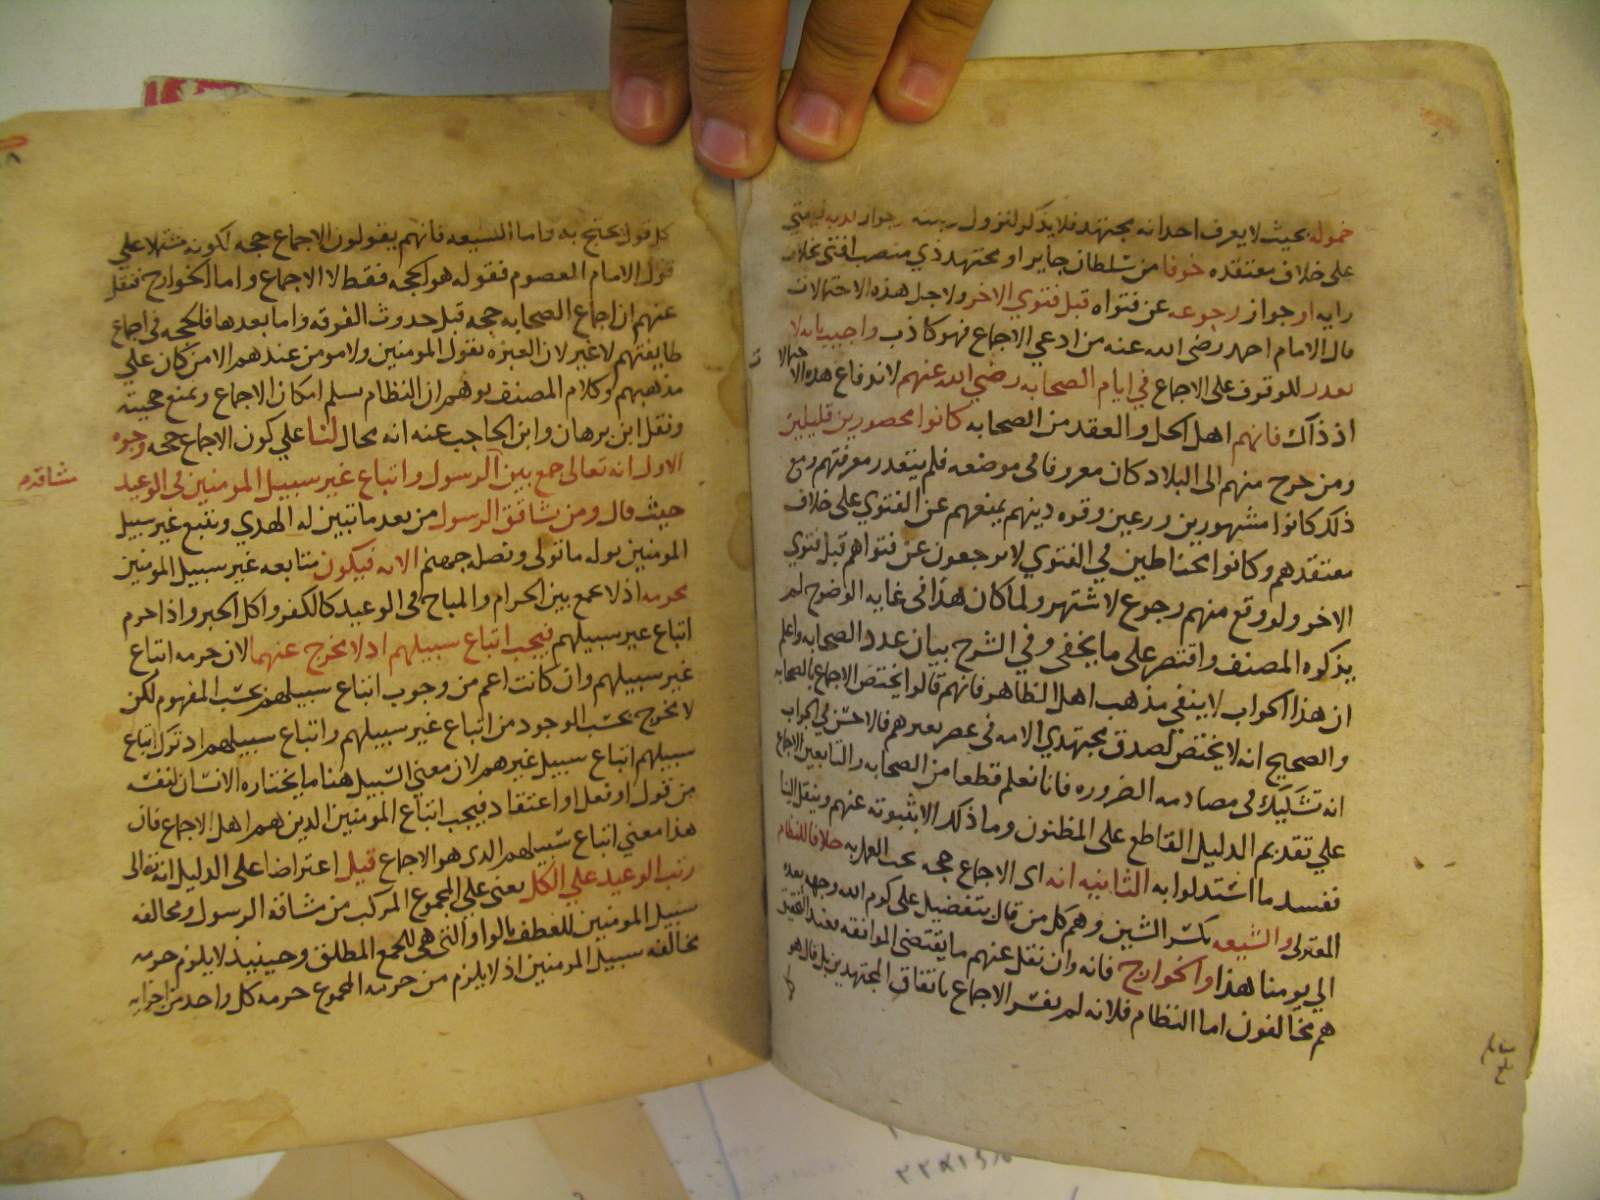 خموله بحيث لا يعرف احد انه مجتهد فلا يذكر لنزول رتبته وجواز كذبه فيفتي
على خلاف معتقده خوفا من سلطان جاير او مجتهد ذي منصب افتى بخلاف
رايه او جواز رجوعه عن فتواه قبل فتوي الاخر ولاجل هذه الاحتمالات
قال الامام احمد رضى الله عنه من ادعي الاجماع فهو كاذب واجيب بانه لا
يتعذر للوقوف على الاجماع في ايام الصحابه رضي الله عنهم لاندفاع هذه الاحتمالات
اذ ذاك فانهم اهل الحل والعقد من الصحابه كانوا محصورين قليلين
ومن خرج منهم الى البلاد كان معروفا في موضعه فلم يتعذر معرفتهم ومع
ذلك كانوا مشهورين ورعين وقوه دينهم يمنعهم عن الفتوي على خلاف
معتقدهم وكانوا محتاطين في الفتوي لا يرجعون عن فتواهم قبل فتوي
الاخر ولو وقع منهم رجوع لاشتهر ولما كان هذا في غايه الوضوح لم
يذكره المصنف واقتصر على ما يخفى وفي الشرح بيان عدد الصحابه واعلم
ان هذا الجواب لا ينفي مذهب اهل الظاهر فانهم قالوا يختص الاجماع بالصحابه
والصحيح انه لا يختص لصدق مجتهدي الامه في عصر بغيرهم فالاحسن في الجواب
انه تشكيك في مصادمه الضروره فانا نعلم قطعا من الصحابه والتابعين الاجماع
علي تقديم الدليل القاطع على المظنون وما ذلك الا بثبوته عنهم وبنقل الينا
ففسد ما استدلوا به الثانيه انه اى الاجماع حجه يجب العمل به خلافا للنظام
المعتزلى والشيعه بكسر الشين وهم كل من قال بتفضيل على كرم الله وجهه بعده
الي يومنا هذا والخوارج فانه وان نقل عنهم ما يقتضى الموافقه فعند التحقيق
هم مخالفون اما النظام فلانه لم يفسر الاجماع باتفاق المجتهدين بل قال هو
كل قول يحتج به واما الشيعه فانهم يقولون الاجماع حجه لكونه مشتملا على
قول الامام المعصوم فقوله هو الحجه فقط لا الاجماع واما الخوارج فنقل
عنهم ان اجماع الصحابه حجه قبل حدوث الفرقه واما بعدها فالحجه في اجماع
طايفتهم لا غير لان العبره بقول المومنين ولا مومن عندهم الا من كان علي
مذهبهم وكلام المصنف يوهم ان النظام سلم امكان الاجماع ومنع حجيته
ونقل ابن برهان وابن الحاجب عنه انه محال لنا علي كون الاجماع حجه وجوه
الاول انه تعالى جمع بين الرسول واتباع غير سبيل المومنين في الوعيد
مشاقه
حيث قال ومن يشاقق الرسول من بعد ما تبين له الهدي ويتبع غير سبيل
المومنين نوله ما تولى ونصله جهنم الايه فيكون متابعه غير سبيل المومنين
محرمه اذ لا يجمع بين الحرام والمباح في الوعيد كالكفر واكل الخبز واذا حرم
اتباع غير سبيلهم فيجب اتباع سبيلهم اذ لا مخرج عنهما لان حرمه اتباع
غير سبيلهم وان كانت اعم من وجوب اتباع سبيلهم بحسب المفهوم لكن
لا مخرج بحسب الوجود من اتباع غير سبيلهم واتباع سبيلهم اذ ترك اتباع
سبيلهم اتباع سبيل غيرهم لان معني السبيل هنا ما يختاره الانسان لنفسه
من قول او فعل او اعتقاد فيجب اتباع المومنين الذين هم اهل الاجماع فان
هذا معني اتباع سبيلهم الذى هو الاجماع قيل اعتراضا على الدليل انه تعالى
رتب الوعيد علي الكل يعنى على المجموع المركب من مشاقه الرسول ومخالفه
سبيل المومنين للعطف بالواو التى هى للجمع المطلق وحينيذ لا يلزم حرمه
مخالفه سبيل المومنين اذ لا يلزم من حرمه المجموع حرمه كل واحد من اجزايه